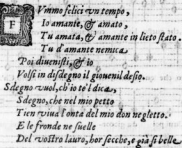 FVmmo felici vn tempo,
Io amante, & amato,
Tu amata, & amante in lieto stato.
Tu d'amante nemica
Poi diuenisti, & io
Volsi in disdegno il giouenil desio.
Sdegno vuol, ch'io te'l dica,
Sdegno, che nel mio petto
Tien viua l'onta del mio don negletto.
E le fronde ne suelle
Del vostro lauro, hor secche, e già si belle